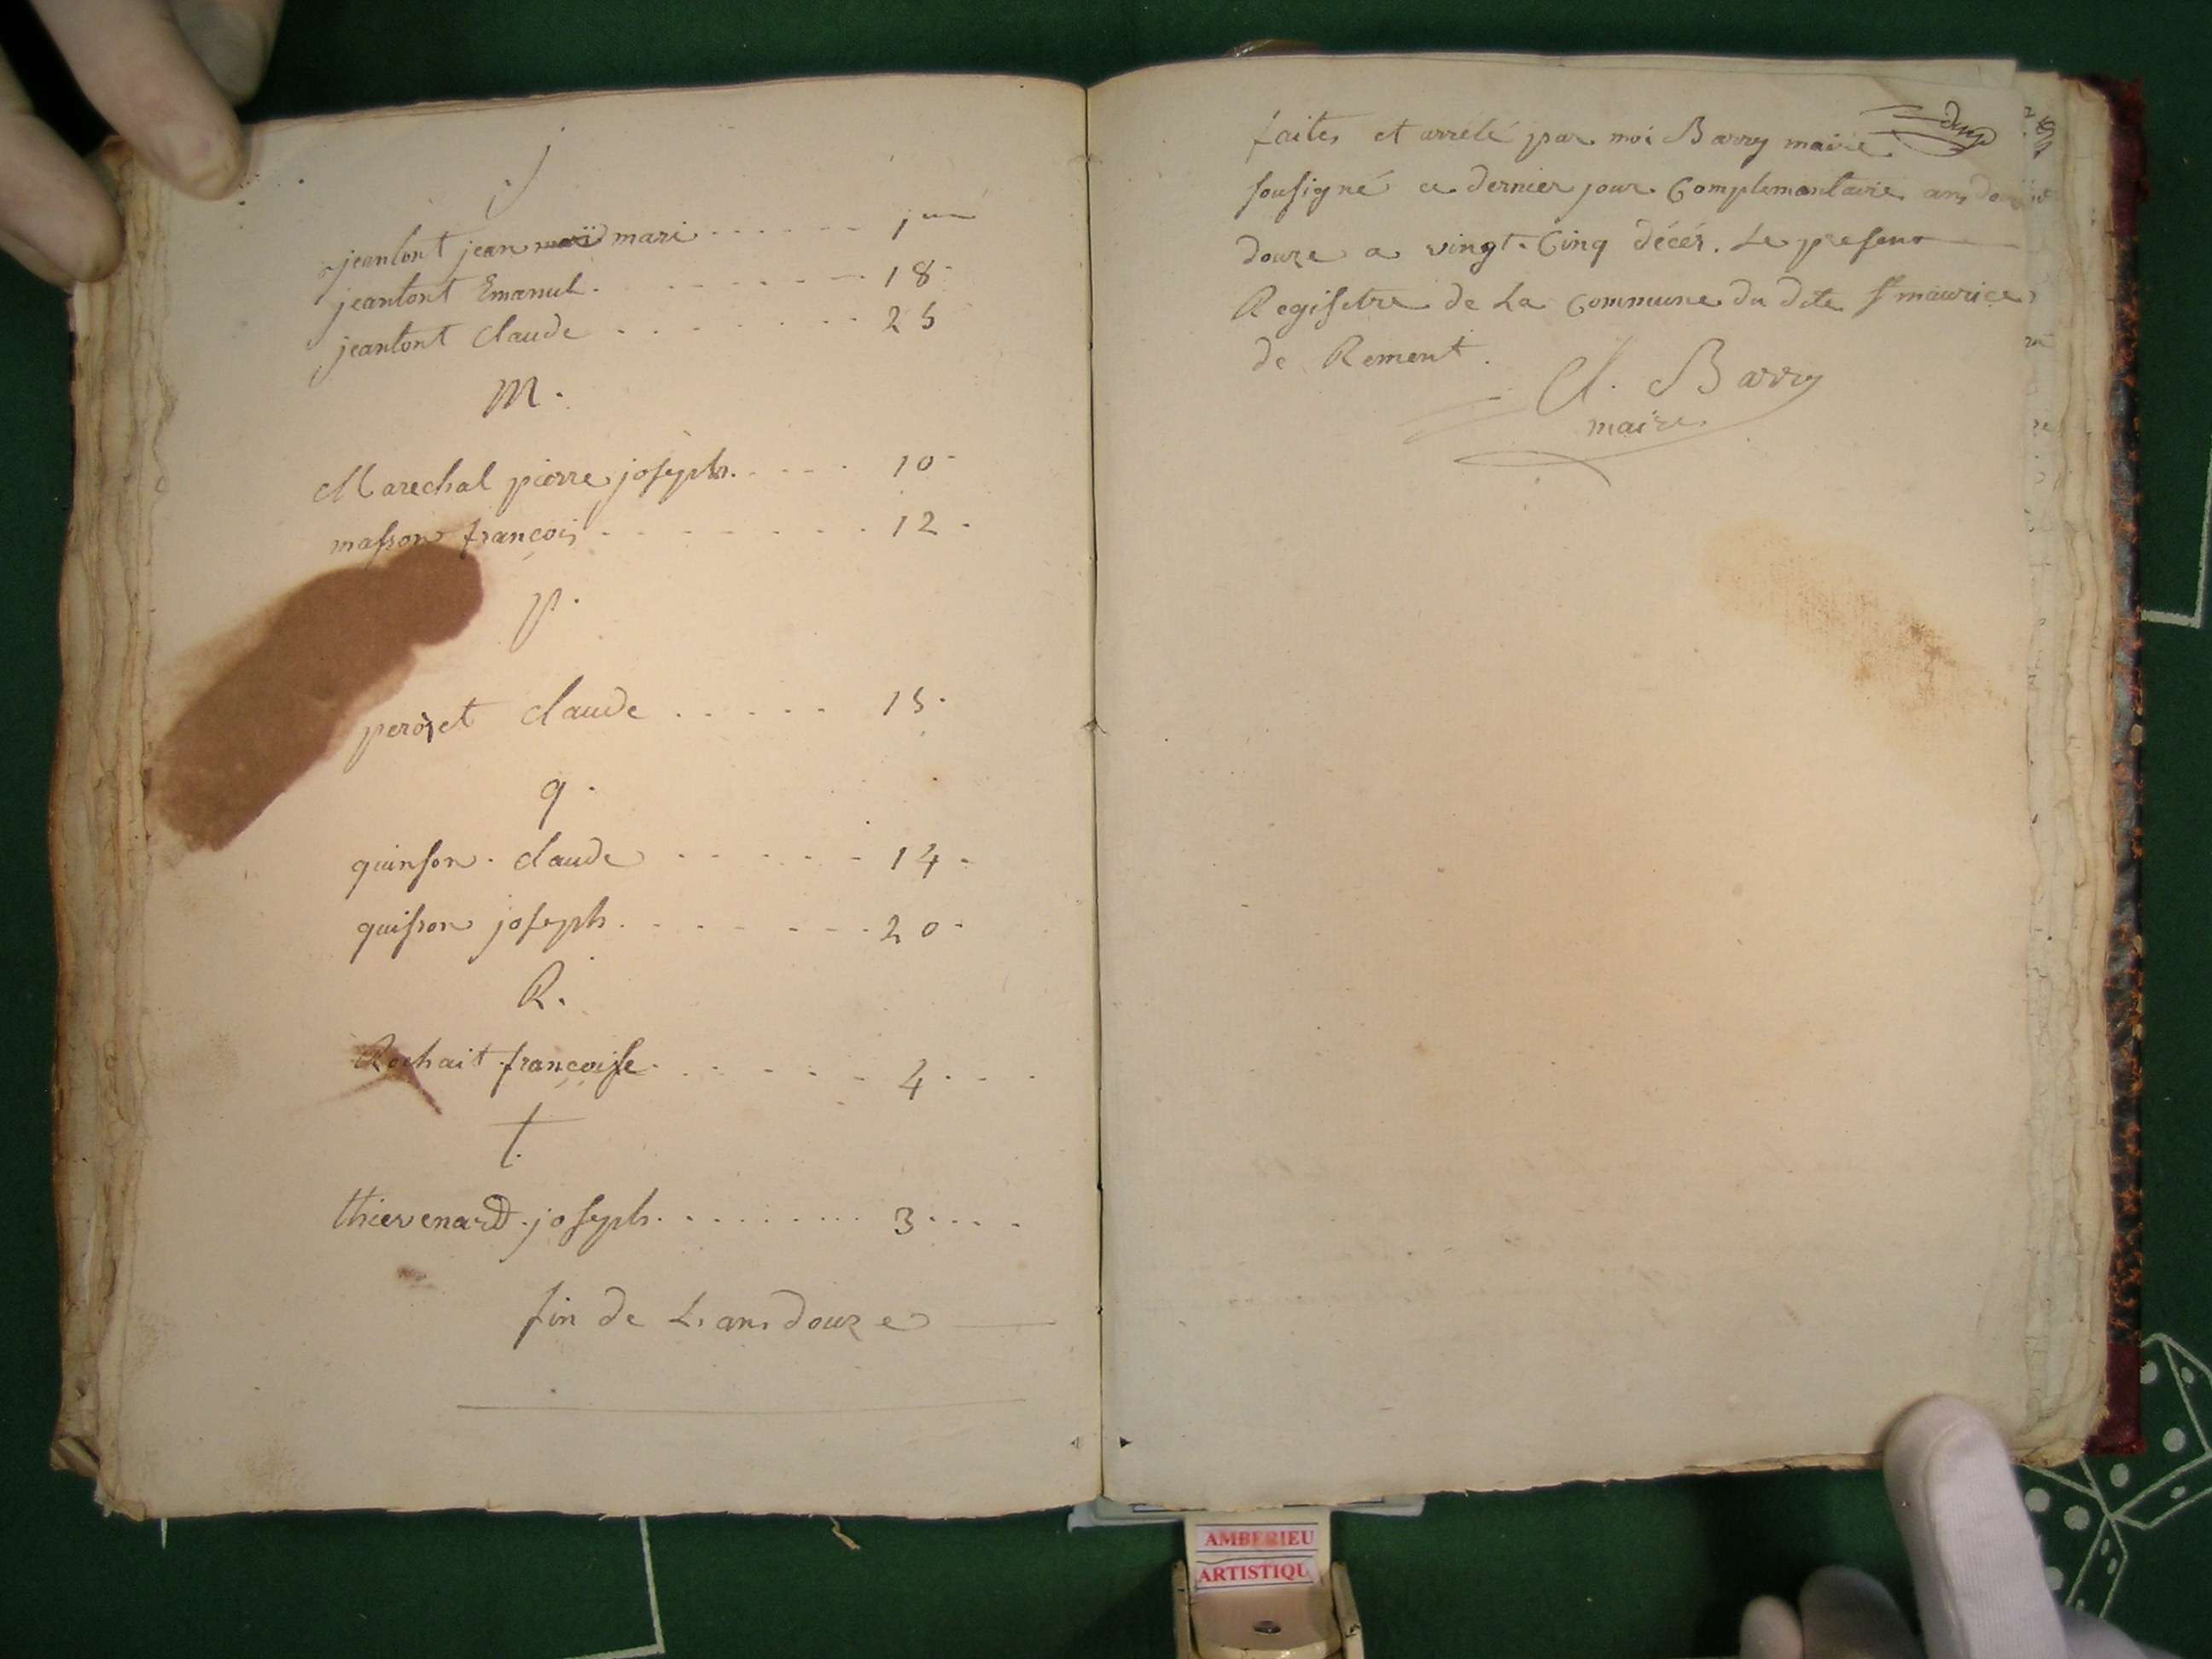 j
jeantont jean mari 1er
jeantont Emanuel 18
jeantont claude 25
M.
Marechal pierre joseph 10
masson francois 12
p.
perozet claude 15
q.
quinson claude 14
quisson joseph 20
R.
Rochait francoise 4
t.
thievenard joseph 3
fin de L'an douze
faites et arrélé par moi Barry maire
sousigné ce dernier jour Complementaire an
douze a vingt-Cinq décés. Le present
Registre de La Commune du dite St maurice
de Rement.
Cl. Barry
maire
AMBERIEU
ARTISTIQU